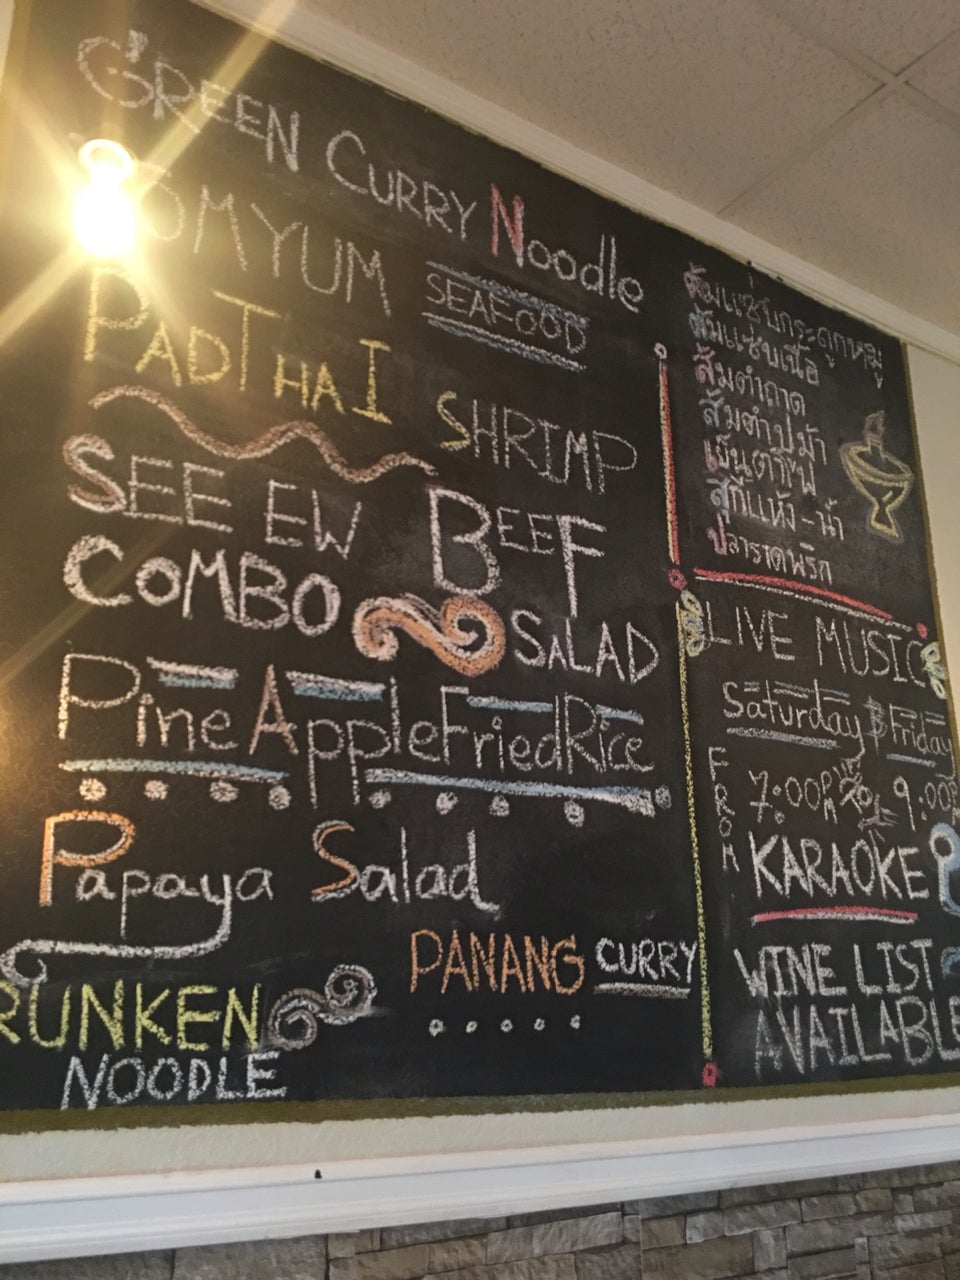 GREEN CURRY Noodle
TOMYUM SEAFOOD
PADTHAI SHRIMP
SEE EW
COMBO
BEEF
SALAD
PineAppleFriedRice
Papaya Salad
PANANG CURRY
RUNKEN
NOODLE
ต้มแซ่บกระดูกหมู
ต้มแซบเนื้อ
ส้มตำถาด
ส้มตำปูม้า
เย็นตาโฟ
สุกี้แห้ง-น้ำ
ปลาราดพริก
LIVE MUSIC
Saturday & Friday
FROM 7:00PM 9:00P
KARAOKE
WINE LIST
AVAILABLE